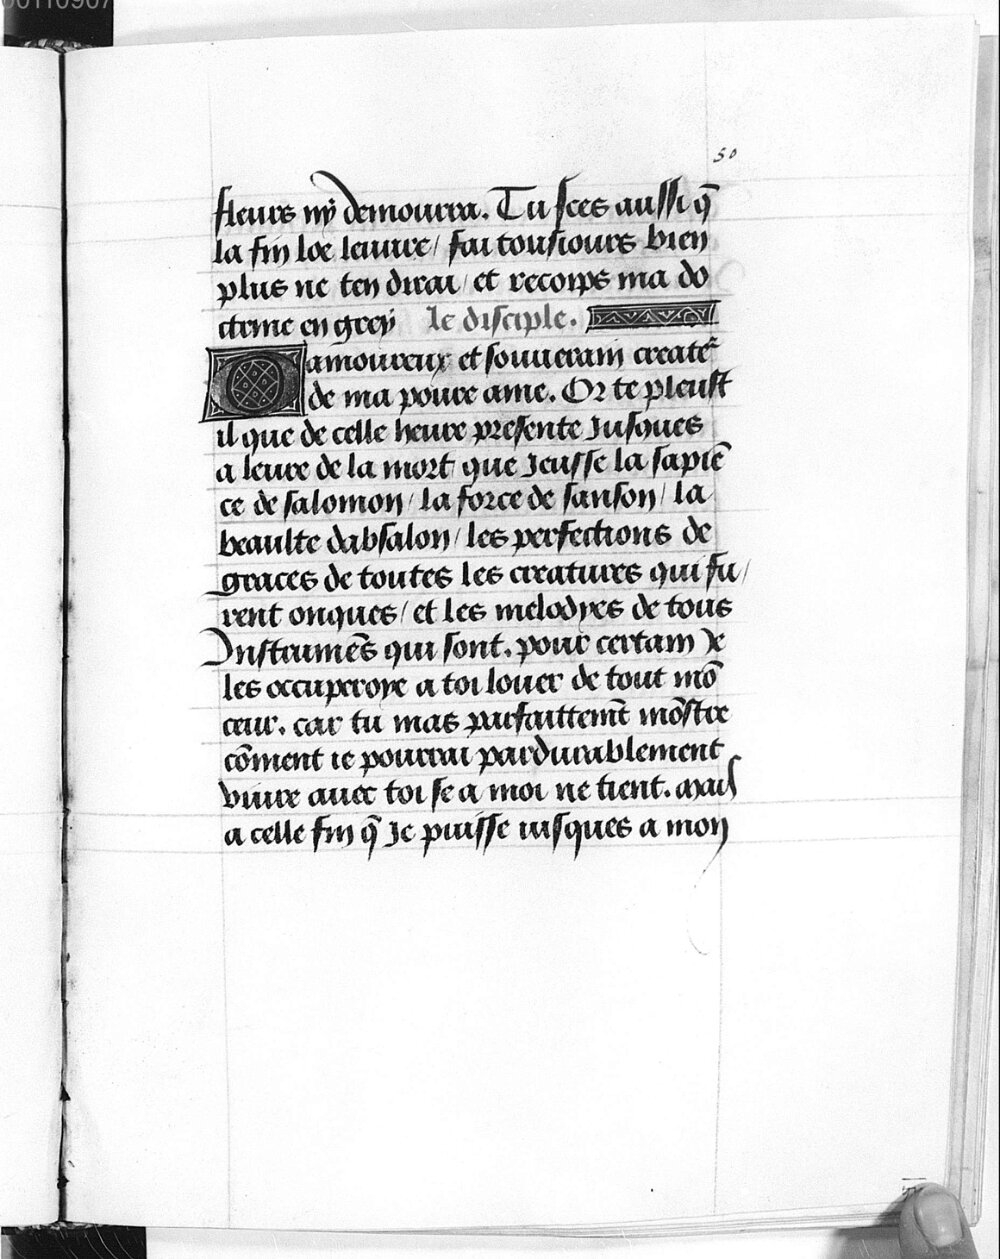 50
fleurs ny demourra. Tu sces aussi q̃
la fin loe leuure / fai tousiours bien
plus ne ten dirai / et recorps ma do
ctrine en grey le disciple.
O amoureux et souuerain creater
de ma poure ame. Or te pleust
il que de celle heure presente Jusques
a leure de la mort que Jeusse la sapiẽ
ce de salomon / la force de sanson / la
beaulte dabsalon / les perfections de
graces de toutes les creatures qui fu/
rent onques / et les melodyes de tous
Instrumẽs qui sont. pour certain Je
les occuperoye a toi louer de tout mõ
ceur. car tu mas parfaittemt̃ mõstre
cõment ie pourrai pardurablement
viure auec toi se a moi ne tient. mais
a celle fin q̃ Je puisse iusques a mon